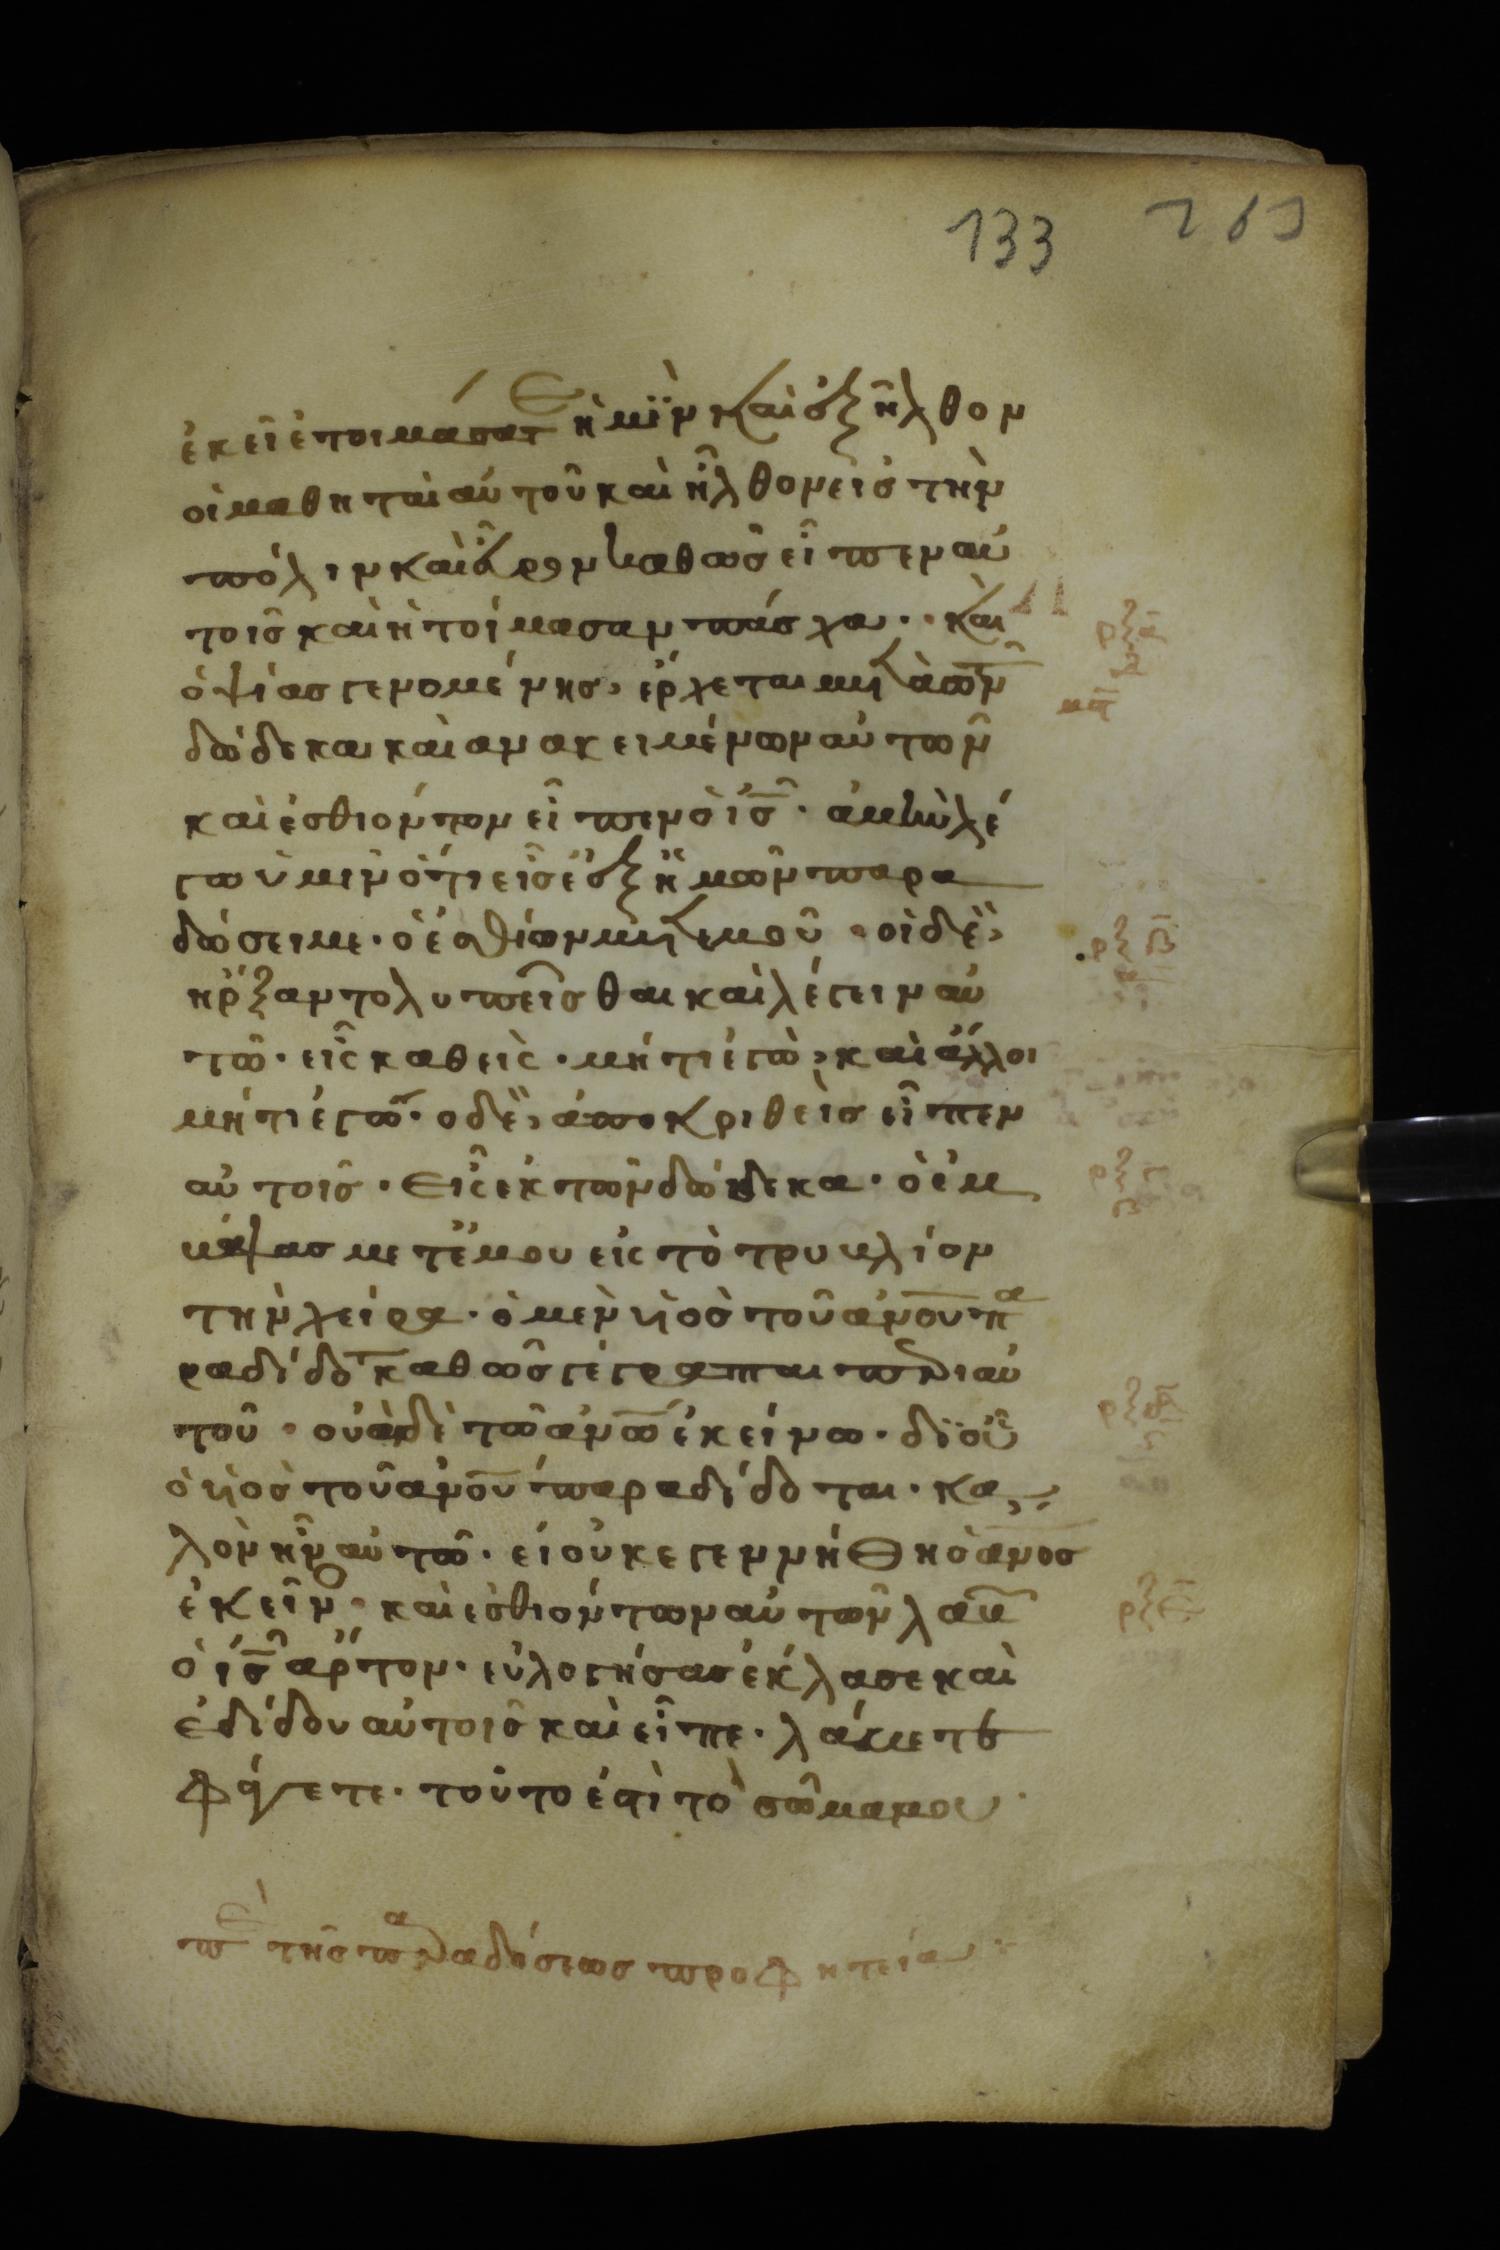 133 263
ἐκεῖ ἑτοιμάσατε ἡμῖν καὶ ἐξῆλθον
οἱ μαθηταὶ αὐτοῦ καὶ ἦλθον εἰς τὴν
πόλιν καὶ εὗρον καθὼς εἶπεν αὐ
τοῖς καὶ ἡτοίμασαν πάσχα · καὶ
ὀψίας γενομένης, ἔρχεται μετὰ τῶν
δώδεκα καὶ ανακειμένων αὐτῶν
καὶ ἐσθιόντον εἶπεν ὁ ις · ἀμὴν λέ
γω ὑμῖν ὅτι εἷς ἐξ ἡμῶν παρα
δώσει με · ὁ ἐσθίων μετ εμοῦ · οἱ δὲ,
ἤρξαντο λυπεῖσθαι καὶ λέγειν αὐ
τῶ · εἷς καθεὶς · μήτι ἐγὼ, καὶ ἄλλοι
μήτι ἐγὼ · ο δὲ, ἀποκριθεὶς εἶπεν
αὐτοῖς · εἷς ἐκ τῶν δώδεκα · ὁ ἐμ
βάψας μετ ἐμου εἰς τὸ τρυβλίον
τὴν χεῖρα · ὁ μεν υἱὸς τοῦ ανου πα
ραδίδοτ καθὼς γέγραπται περι αὐ
τοῦ · ουὰι δὲ τῶ ανω ἐκείνω · δι οὗ
ὁ υἱὸς τοῦ ανου παραδίδοται · κα
λὸν ἦν αὐτῶ · εἰ οὐκ εγεννήθη ὁ ανος
ἐκεῖνο · καὶ ἐσθιόντων αὐτῶν λαβ
ὁ ις ἄρτον · εὐλογήσας ἔκλασε καὶ
ἐδίδου αὐτοῖς καὶ εἶπε · λάβετε
φάγετε · τοῦτο ἐστὶ τὸ σῶμα μου ·
πε τῆς παραδόσεως προφητεία
ρξα
μη
ρξβ
ρξγ
ρξδ
ρξε